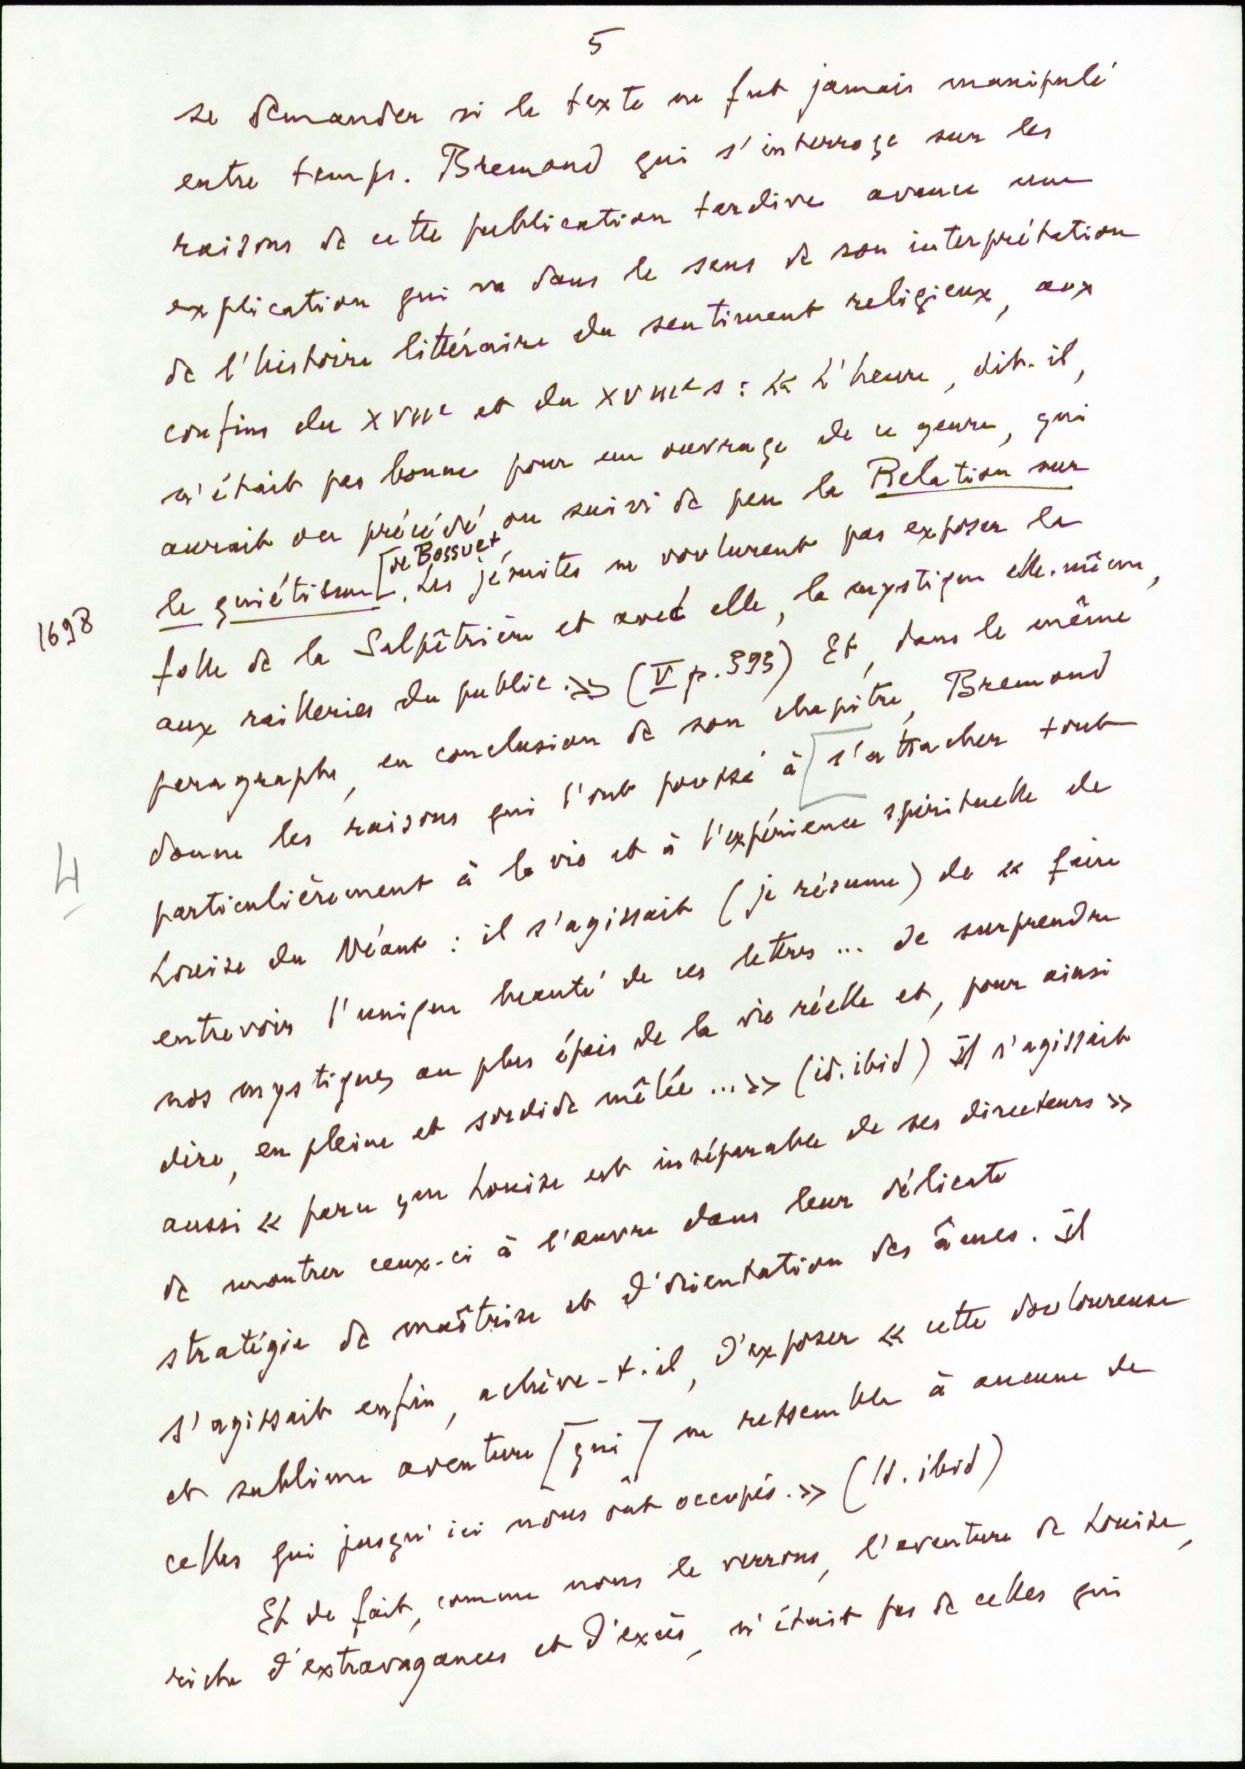 5
se demander si le texte ne fut jamais manipulé
entre temps. Bremond qui s'interroge sur les
raisons de cette publication tardive avance une
explication qui va dans le sens de son interprétation
de l'histoire littéraire du sentiment religieux, aux
confins du XVIIe et du XVIIIe s : « L'heure, dit-il,
n'était pas bonne pour un ouvrage de ce genre, qui
aurait ou précédé ou suivi de peu la Relation sur
le quiétisme [de Bossuet]. Les jésuites ne voulurent pas exposer la
1698
folle de la Salpêtrière et avec elle, la mystique elle-même,
aux railleries du public. » (V p. 393) Et, dans le même
paragraphe, en conclusion de son chapitre, Bremond
donne les raisons qui l'ont poussé à [s'attacher tout
4
particulièrement à la vie et à l'expérience spirituelle de
Louise du Néant : il s'agissait (je résume) de « faire
entrevoir l'unique beauté de ces lettres ... de surprendre
nos mystiques au plus épais de la vie réelle et, pour ainsi
dire, en pleine et sordide mêlée ... » (id. ibid) Il s'agissait
aussi « parce que Louise est inséparable de ses directeurs »
de montrer ceux-ci à l'œuvre dans leur délicate
stratégie de maîtrise et d'orientation des âmes. Il
s'agissait enfin, achève-t-il, d'exposer « cette douloureuse
et sublime aventure [qui] ne ressemble à aucune de
celles qui jusqu'ici nous ont occupés. » (Id. ibid)
Et de fait, comme nous le verrons, l'aventure de Louise,
riche d'extravagances et d'excès, n'était pas de celles qui